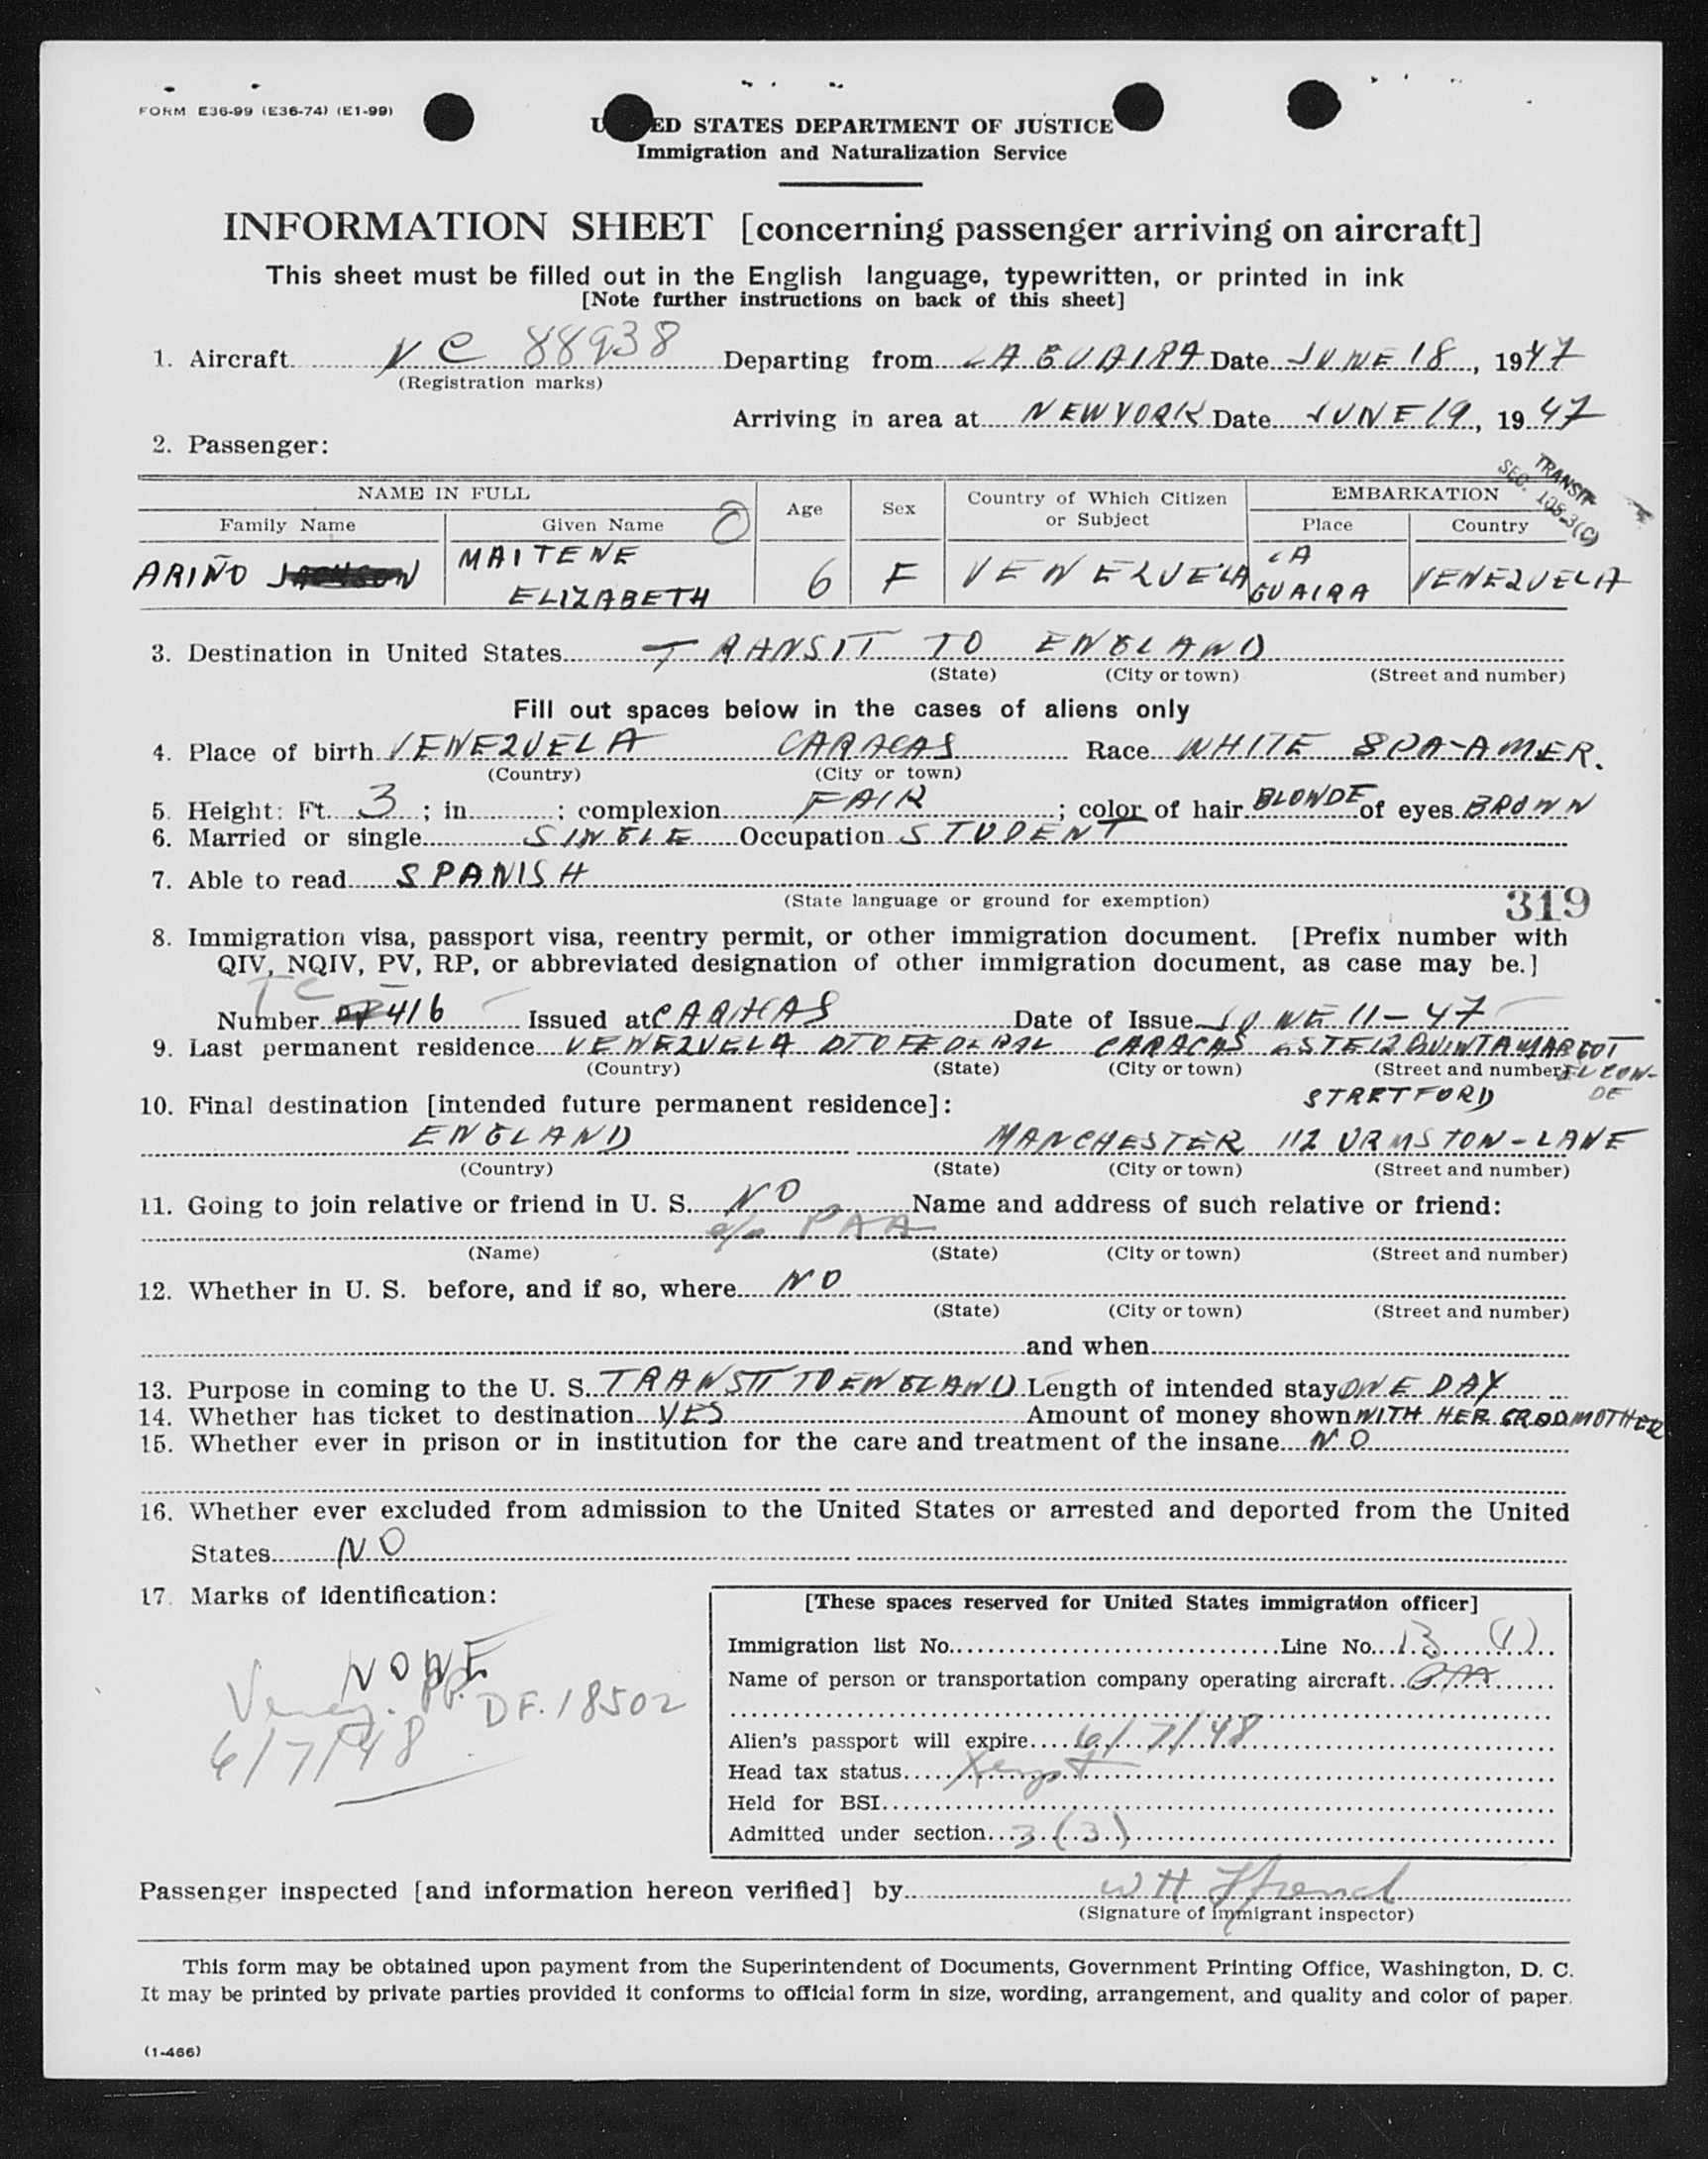 FORM E36-99 (E36-74) (E1-99)
U ED STATES DEPARTMENT OF JUSTICE
Immigration and Naturalization Service
INFORMATION SHEET [concerning passenger arriving on aircraft]
This sheet must be filled out in the English language, typewritten, or printed in ink
[Note further instructions on back of this sheet]
1. Aircraft NC 88938 Departing from LA GUAIRA Date JUNE 18, 1947
(Registration marks)
Arriving in area at NEW YORK Date JUNE 19, 1947
2. Passenger:
TRANSIT
SEC. 105.3(C)
NAME IN FULL Age Sex Country of Which Citizen or Subject EMBARKATION
Family Name Given Name Place Country
ARIÑO JACKSON MAITENE ELIZABETH 6 F VENEZUELA LA GUAIRA VENEZUELA
3. Destination in United States TRANSIT TO ENGLAND
(State) (City or town) (Street and number)
Fill out spaces below in the cases of aliens only
4. Place of birth VENEZUELA CARACAS Race WHITE SPA-AMER.
(Country) (City or town)
5. Height: Ft. 3; in. ; complexion FAIR; color of hair BLONDE of eyes BROWN
6. Married or single SINGLE Occupation STUDENT
7. Able to read SPANISH
(State language or ground for exemption)
319
8. Immigration visa, passport visa, reentry permit, or other immigration document. [Prefix number with
QIV, NQIV, PV, RP, or abbreviated designation of other immigration document, as case may be.]
TC
Number 416 Issued at CARACAS Date of Issue JUNE 11-47
9. Last permanent residence VENEZUELA DTO FEDERAL CARACAS ESTE 12 QUINTA MARGOT
(Country) (State) (City or town) (Street and number) EL CON-
DE
10. Final destination [intended future permanent residence]: STRETFORD
ENGLAND MANCHESTER 112 URMSTON-LANE
(Country) (State) (City or town) (Street and number)
11. Going to join relative or friend in U. S. NO Name and address of such relative or friend:
c/o PAA
(Name) (State) (City or town) (Street and number)
12. Whether in U. S. before, and if so, where NO
(State) (City or town) (Street and number)
and when
13. Purpose in coming to the U. S. TRANSIT TO ENGLAND Length of intended stay ONE DAY
14. Whether has ticket to destination YES Amount of money shown WITH HER GRODMOTHER
15. Whether ever in prison or in institution for the care and treatment of the insane NO
16. Whether ever excluded from admission to the United States or arrested and deported from the United
States NO
17. Marks of identification:
NONE
Venez. PP. DF. 18502
6/7/48
[These spaces reserved for United States immigration officer]
Immigration list No. Line No. 13 (1)
Name of person or transportation company operating aircraft PAA
Alien's passport will expire 6/7/48
Head tax status Xempt
Held for BSI
Admitted under section 3(3)
Passenger inspected [and information hereon verified] by WH
(Signature of immigrant inspector)
This form may be obtained upon payment from the Superintendent of Documents, Government Printing Office, Washington, D. C.
It may be printed by private parties provided it conforms to official form in size, wording, arrangement, and quality and color of paper.
(1-466)